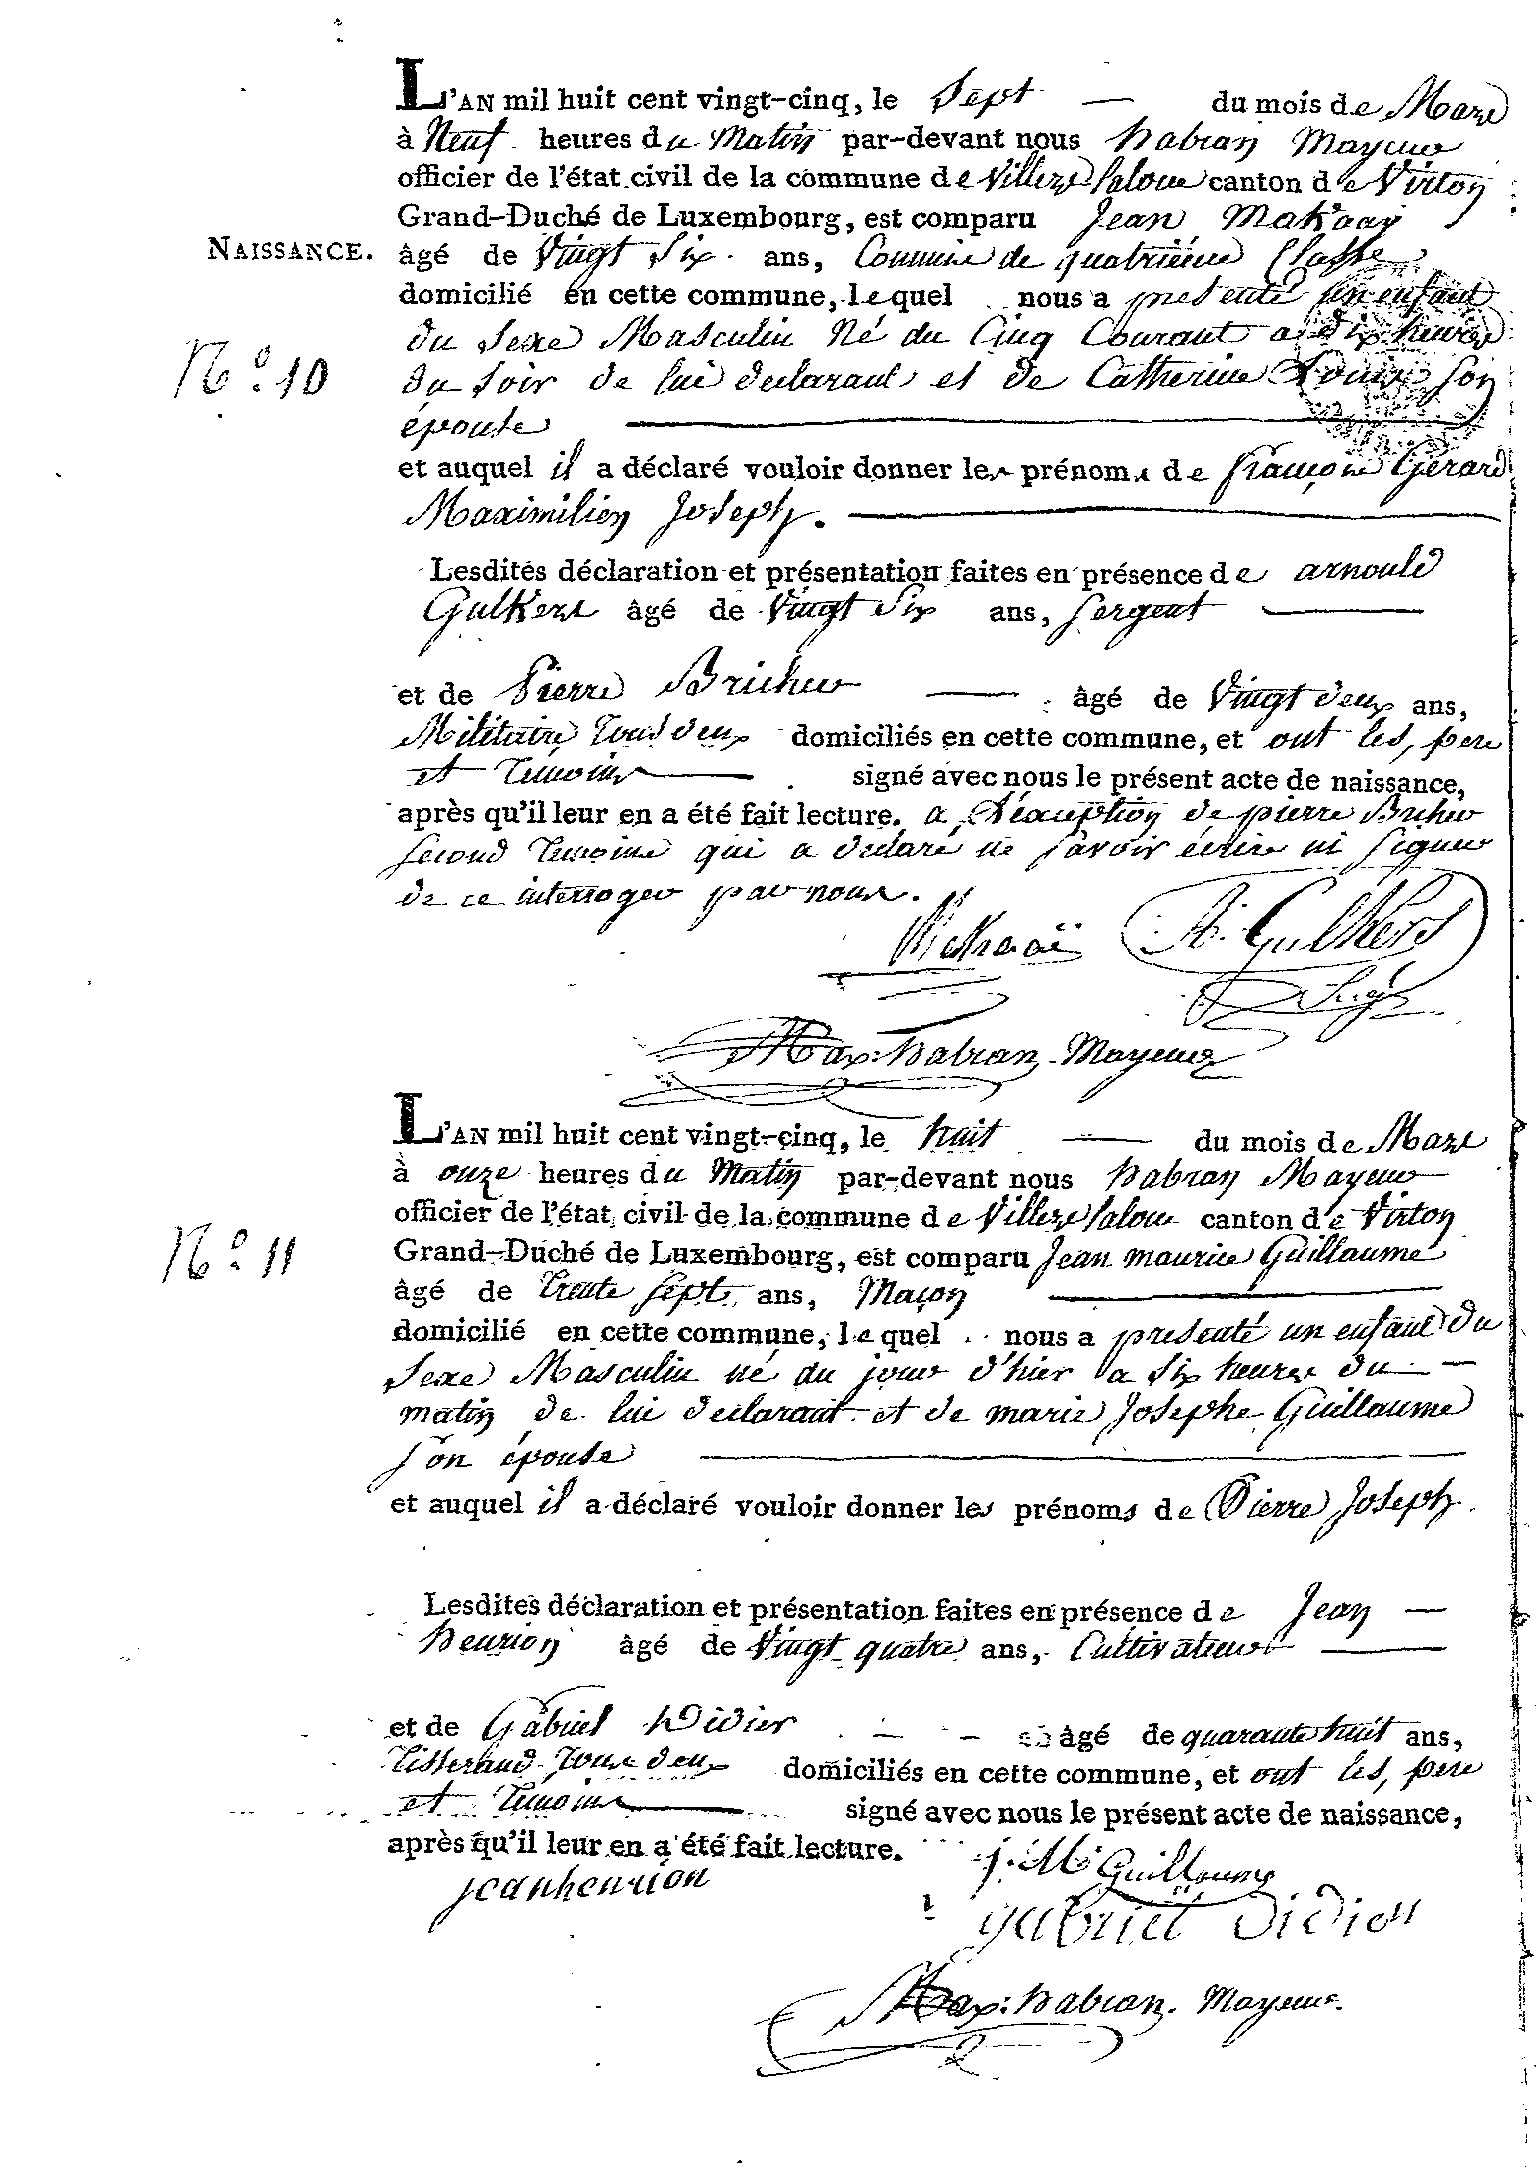 L'AN mil huit cent vingt-cinq, le Sept du mois de Mars
à Neuf heures du Matin par-devant nous habran Mayeur
officier de l'état civil de la commune de Villers Laloue canton de Virton
Grand-Duché de Luxembourg, est comparu Jean
NAISSANCE.
âgé de Vingt Six ans, Commis de quatrième Classe
domicilié en cette commune, lequel nous a presenté un enfant
N.º 10
du Sexe Masculin Né du Cinq Courant a dix heures
du soir de lui declarant et de Catherine son
épouse
et auquel il a déclaré vouloir donner les prénoms de françois Gérard
Maximilien Joseph.
Lesdites déclaration et présentation faites en présence de arnould
Gulkers âgé de Vingt Six ans, Sergent
et de Pierre Bricheu âgé de Vingt deux ans,
Militaire Tous deux domiciliés en cette commune, et ont les, pere
et Temoins signé avec nous le présent acte de naissance,
après qu'il leur en a été fait lecture. a l'éxception de pierre Bricheu
second Temoins qui a declaré ne savoir écrire ni signer
de ce interroger par nous.
A. Gulkers
Sergt
Max: habran Mayeur
L'AN mil huit cent vingt-cinq, le huit du mois de Mars
à onze heures du Matin par-devant nous habran Mayeur
officier de l'état civil de la commune de Villers Laloue canton de Virton
N.º 11
Grand-Duché de Luxembourg, est comparu Jean maurice Guillaume
âgé de Trente sept ans, Maçon
domicilié en cette commune, lequel nous a presenté un enfant du
Sexe Masculin né du jour d'hier a six heures du
matin de lui declarant et de marie Josephe Guillaume
son épouse
et auquel il a déclaré vouloir donner les prénoms de Pierre Joseph.
Lesdites déclaration et présentation faites en présence de Jean
henrion âgé de Vingt quatre ans, Cultivateur
et de Gabriel Didier âgé de quarante huit ans,
Tisserand Tous deux domiciliés en cette commune, et ont les, pere
et Temoins signé avec nous le présent acte de naissance,
après qu'il leur en a été fait lecture.
J. M. Guillaume
jeanhenrion
gabriel didier
Max: habran. Mayeur.